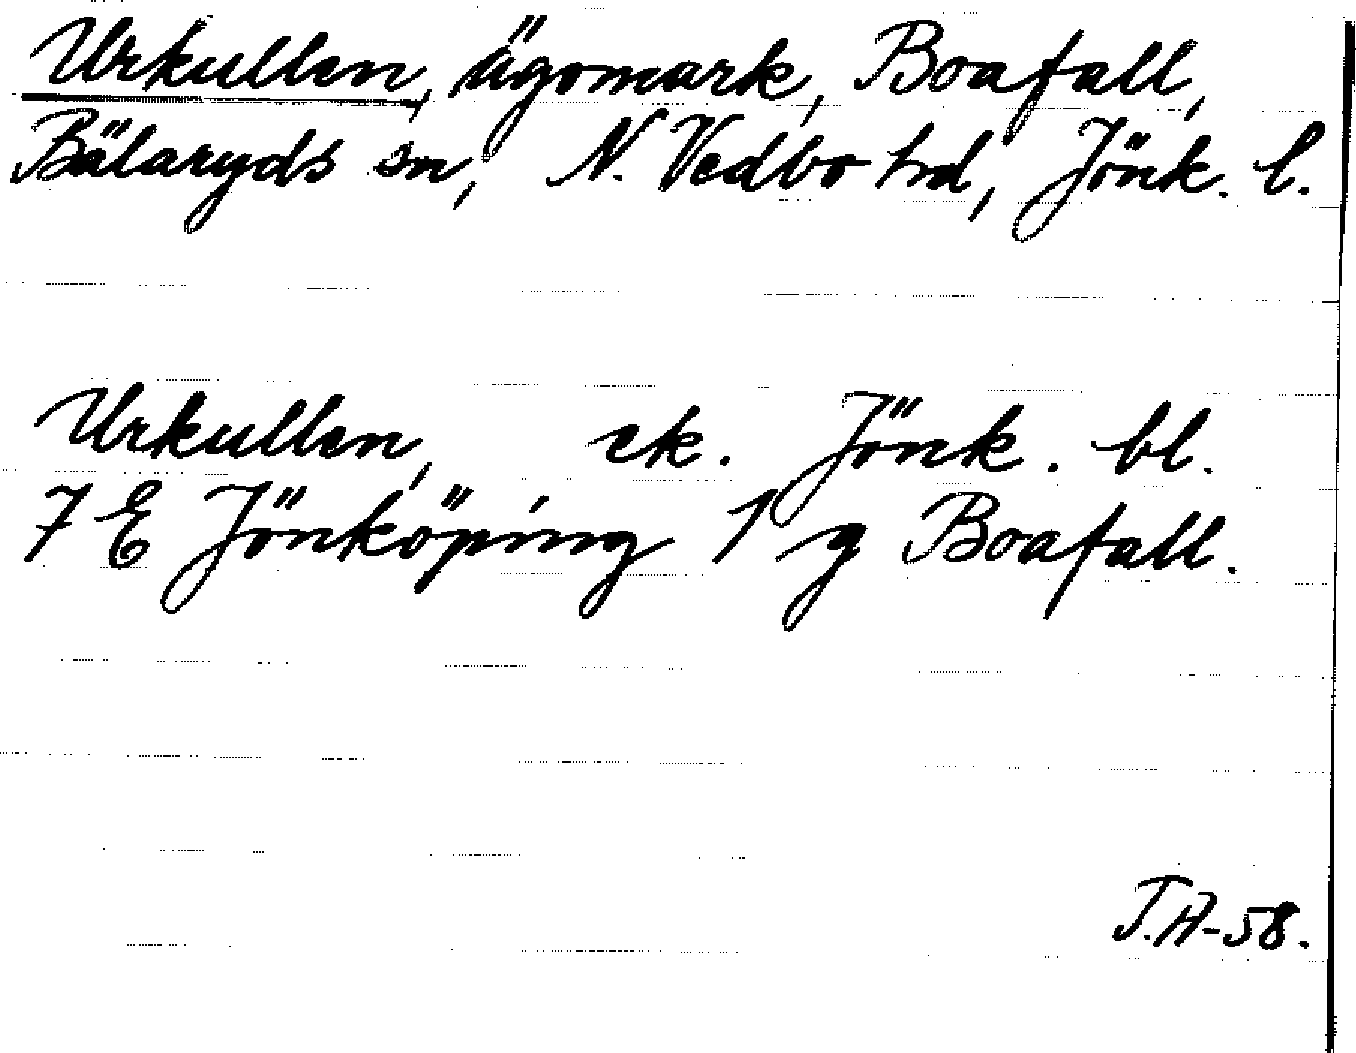 Urkullen, ägomark, Boafall,
Bälaryds sn, N. Vedbo hd, Jönk. l.
Urkullen, ek. Jönk. bl.
7 E Jönköping 1 g Boafall.
T.A-58.